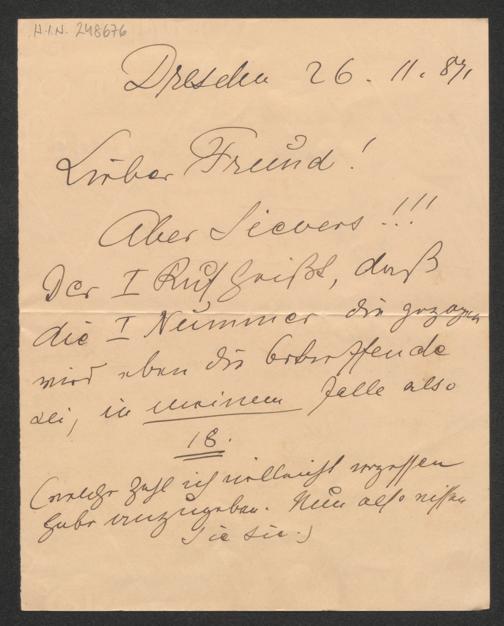 H.I.N. 248676
Dresden 26. 11. 87.
Lieber Freund!
Aber Sievers!!!
Der I Ruf heißt, daß
die I Nummer die gezogen
wird eben die betreffende
sei, in meinem Falle also
18.
(welche Zahl ich vielleicht vergessen
habe anzugeben. Nun also wissen
Sie sie.)